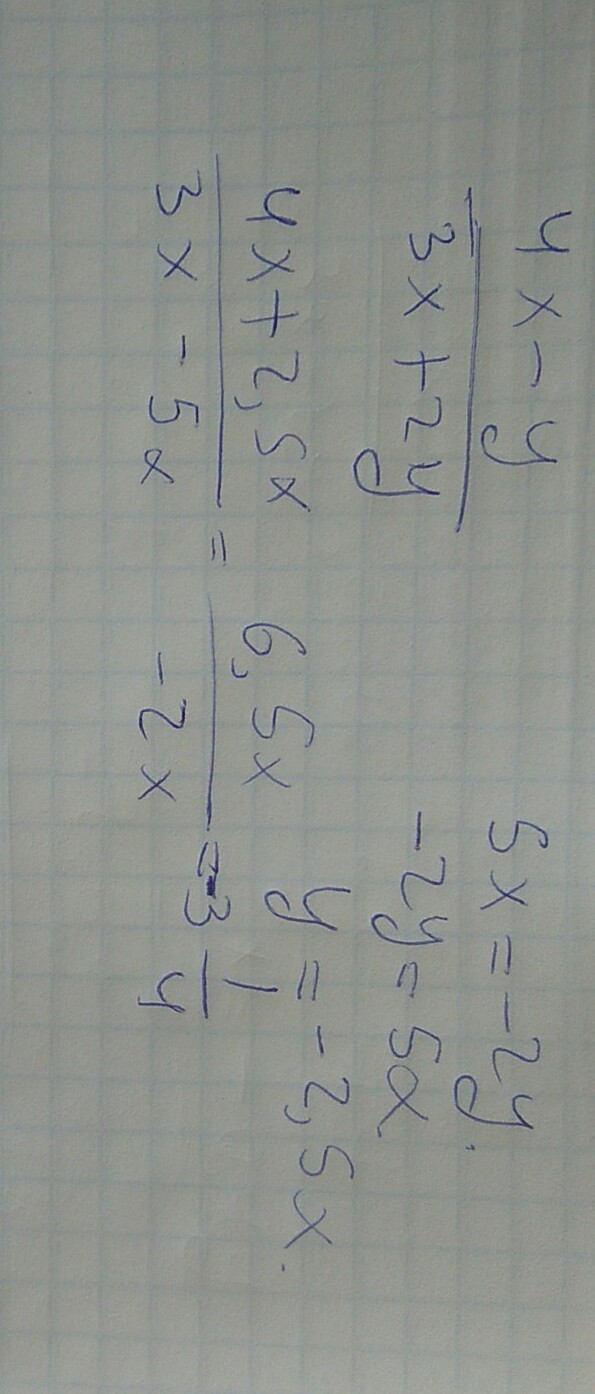 4x - y
3x + 2y
5x = -2y.
-2y = 5x
y = -2,5x.
4x + 2,5x
3x - 5x
=
6,5x
-2x
= -3 1/4